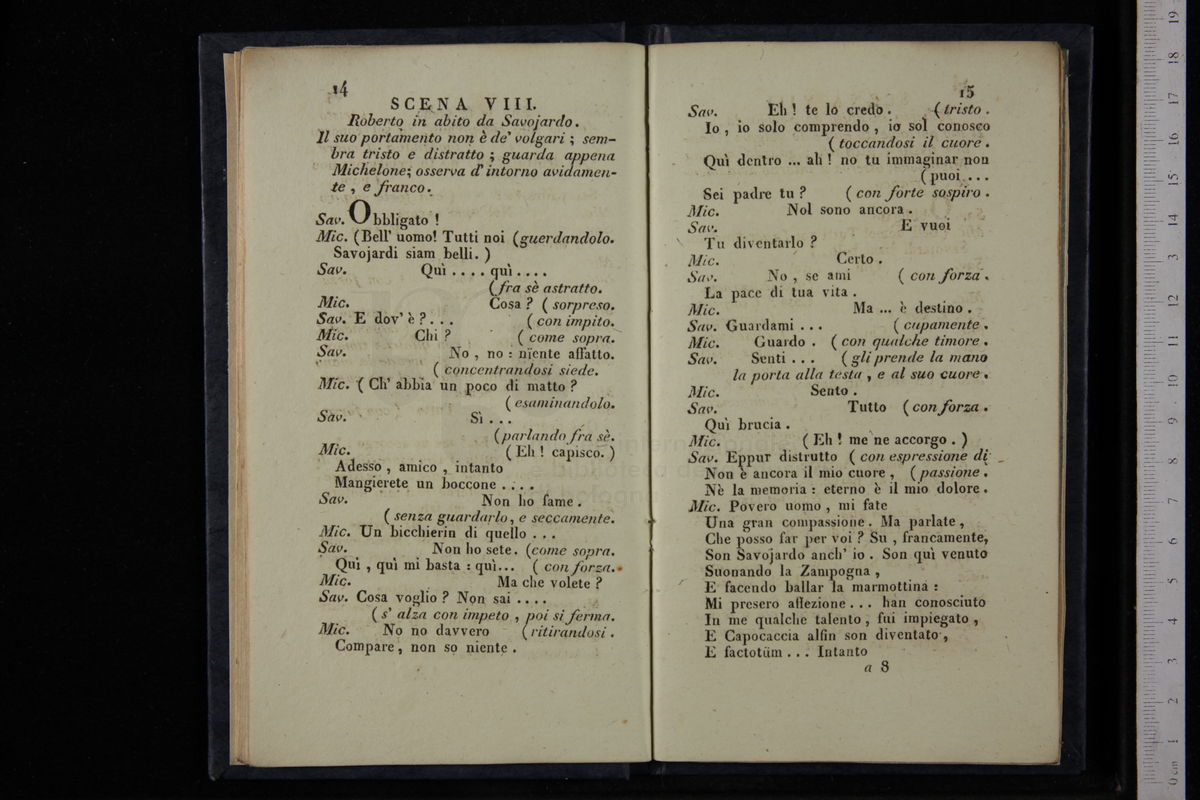 14
SCENA VIII.
Roberto in abito da Savojardo.
Il suo portamento non è de' volgari ; sem-
bra tristo e distratto ; guarda appena
Michelone; osserva d' intorno avidamen-
te , e franco.
Sav. Obbligato !
Mic. (Bell' uomo! Tutti noi (guerdandolo.
Savojardi siam belli. )
Sav. Quì .... quì ....
(fra sè astratto.
Mic. Cosa ? ( sorpreso.
Sav. E dov' è ? . . . ( con impito.
Mic. Chi ? ( come sopra.
Sav. No , no : niente affatto.
( concentrandosi siede.
Mic. ( Ch' abbia un poco di matto ?
( esaminandolo.
Sav. Sì . . .
(parlando fra sè.
Mic. ( Eh ! capisco. )
Adesso , amico , intanto
Mangierete un boccone . . . .
Sav. Non ho fame .
( senza guardarlo, e seccamente.
Mic. Un bicchierin di quello . . .
Sav. Non ho sete. (come sopra.
Qui , quì mi basta : quì... ( con forza.
Mic. Ma che volete ?
Sav. Cosa voglio ? Non sai ....
( s' alza con impeto , poi si ferma.
Mic. No no davvero (ritirandosi .
Compare , non so niente .
15
Sav. Eh ! te lo credo . ( tristo .
Io , io solo comprendo , io sol conosco
( toccandosi il cuore .
Quì dentro ... ah ! no tu immaginar non
( puoi . . .
Sei padre tu ? ( con forte sospiro .
Mic. Nol sono ancora .
Sav. E vuoi
Tu diventarlo ?
Mic. Certo .
Sav. No , se ami ( con forza .
La pace di tua vita .
Mic. Ma ... è destino .
Sav. Guardami . . . ( cupamente .
Mic. Guardo . ( con qualche timore .
Sav. Senti . . . ( gli prende la mano
la porta alla testa , e al suo cuore .
Mic. Sento .
Sav. Tutto ( con forza .
Quì brucia .
Mic. ( Eh ! me ne accorgo . )
Sav. Eppur distrutto ( con espressione di
Non è ancora il mio cuore , ( passione .
Nè la memoria : eterno è il mio dolore .
Mic. Povero uomo , mi fate
Una gran compassione . Ma parlate ,
Che posso far per voi ? Su , francamente,
Son Savojardo anch' io . Son quì venuto
Suonando la Zampogna ,
E facendo ballar la marmottina :
Mi presero affezione . . . han conosciuto
In me qualche talento , fui impiegato ,
E Capocaccia alfin son diventato ,
E factotum . . . Intanto
a 8